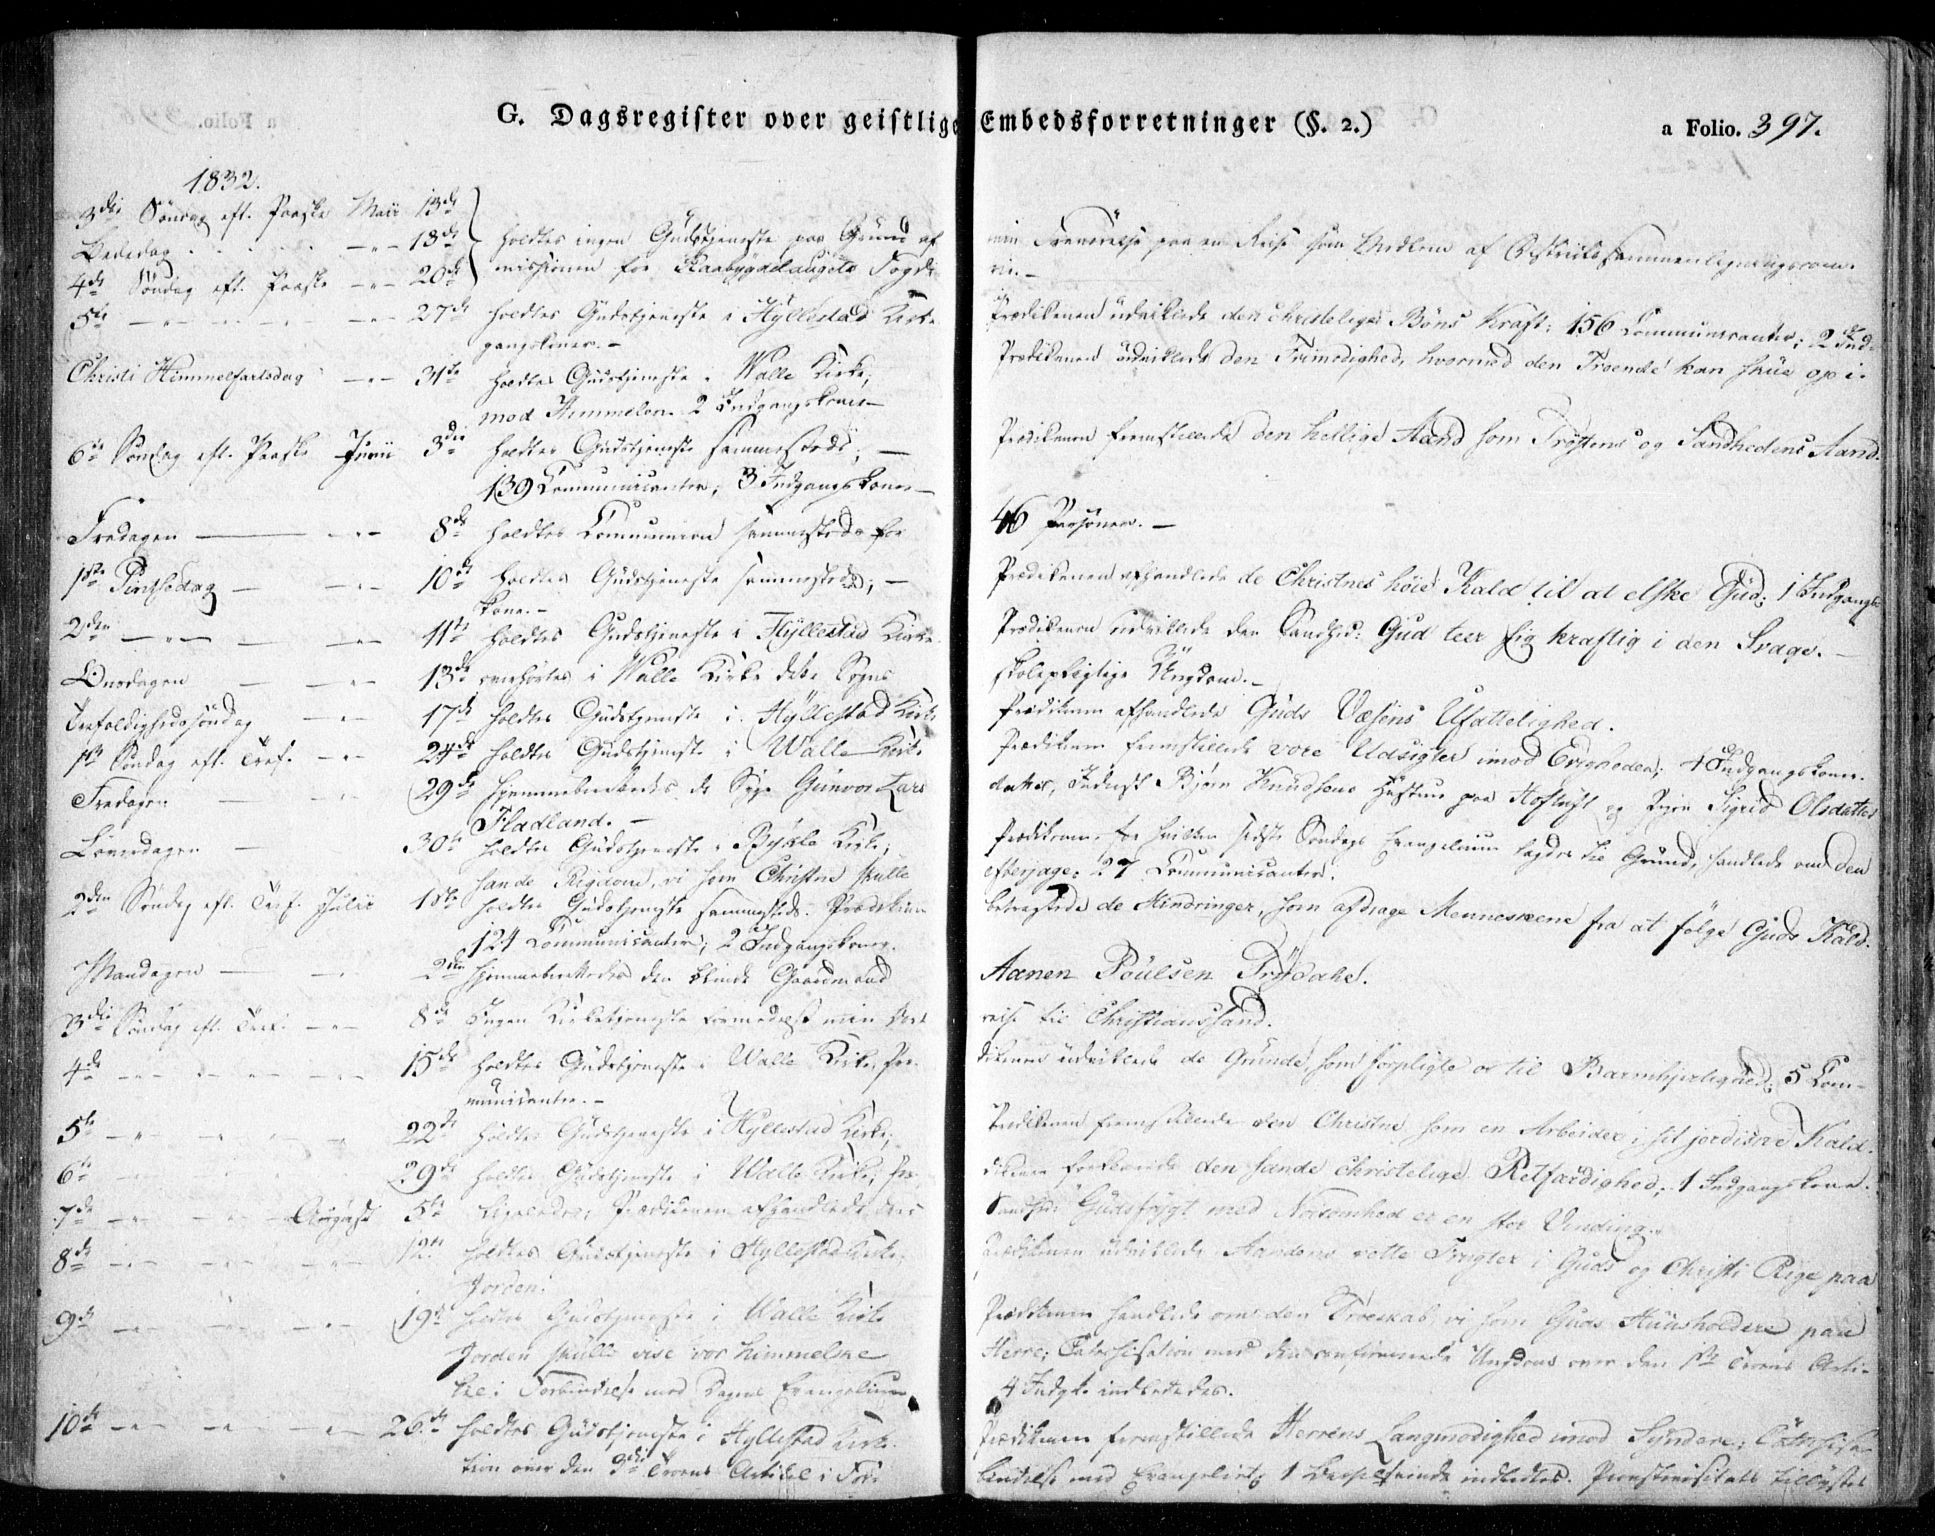 G. Dagsregister over geistlige Embedsforretninger (§. 2.)
a Folio. 397.
1832.
3die Søndag eft. Paaske Maii 13de
Bededag 18de holdtes ingen Gudstjeneste paa Grund af min Fraværelse paa en Reise som Medlem af
4de Søndag eft. Paaske 20de missionen for Raabygdelaugets Fogde rie.
5te 27de holdtes Gudstjeneste i Hyllestad Kirke Prædikenen udviklede den christelige Bøns Kraft; 156 Communicanter; 2 Ind-
gangskoner.
Christi Himmelfartsdag 31te holdtes Gudstjeneste i Walle Kirke; Prædikenen udviklede den Frimodighed, hvormed den Troende kan skue op i-
mod Himmelen. 2 Indgangskoner
6te Søndag eft. Paaske Junii 3die holdtes Gudstjeneste sammesteds; Prædikenen fremstillede den hellige Aand som Trøstens og Sandhedens Aand.
139 Communicanter; 3 Indgangskoner
Fredagen 8de holdtes Communion sammesteds for 46 Personer.
1ste Pintsedag 10de holdtes Gudstjeneste sammesteds; Prædikenen afhandlede de Christnes høie Kald til at elske Gud; 1 Indgangs-
kone.
2den 11te holdtes Gudstjeneste i Hyllestad Kirke Prædikenen udviklede den Sandhed: Gud teer sig kraftig i den Svage.
Onsdagen 13de overhørtes i Walle Kirke dette Sogns skolepligtige Ungdom.
Trefoldighedssøndag 17de holdtes Gudstjeneste i Hyllestad Kirke Prædikenen afhandlede Guds Væsens Ufattelighed.
1ste Søndag eft. Tref. 24de holdtes Gudstjeneste i Walle Kirke Prædikenen fremstillede vore Udsigter imod Evigheden; 4 Indgangskoner.
Fredagen 29de hjemmeberettedes de Syge Gunvor Lars datter, Inderst Bjørn Knudsens Hustrue paa Hoftuft og Pigen Sigrid Olsdatter
Fladland.
Løverdagen 30te holdtes Gudstjeneste i Bykle Kirke; Prædikenen, for hvilken sidste Søndags Evangelium lagdes til Grund, handlede om den
sande Rigdom, vi som Christne skulle efterjage; 27 Communicanter.
2den Søndag eft. Tref. Julii 1ste holdtes Gudstjeneste sammesteds. Prædikenen betragtede de Hindringer, som afdrage Menneskene fra at følge Guds Kald.
124 Communicanter; 2 Indgangskoner.
Mandagen 2den hjemmeberettedes den blinde Gaardmand Aanen Poulsen Trydahl.
3die Søndag eft. Tref. 8de Ingen Kirketjeneste formedelst min Bort reise til Christianssand.
4de 15de holdtes Gudstjeneste i Walle Kirke, Præ- dikenen udviklede de Grunde, som forpligte os til Barmhjertighed; 5 Com-
municanter.
5te 22de holdtes Gudstjeneste i Hyllestad Kirke; Prædikenen fremstillede den Christne som en Arbeider i sit jordiske Kald.
6te 29de holdtes Gudstjeneste i Walle Kirke; Præ- dikenen forklarede den sande christelige Retfærdighed; 1 Indgangskone.
7de August 5te Ligeledes; Prædikenen afhandlede den Sandhed: Gudsfrygt med Nøisomhed er en stor Vinding.
8de 12te holdtes Gudstjeneste i Hyllestad Kirke; Prædikenen udviklede Aandens rette Frugter i Guds og Christi Rige paa
Jorden.
9de 19de holdtes Gudstjeneste i Walle Kirke Prædikenen handlede om den Troeskab, vi som Guds Huusholdere paa
Jorden skulle vise vor himmelske Herre; Catechisation med den confirmerede Ungdom over den 1ste Troens Arti-
kel i Forbindelse med Dagens Evangelium 4 Indgk. indlededes.
10de 26de holdtes Gudstjeneste i Hyllestad Kirke. Prædikenen fremstillede Herrens Langmodighed imod Syndere; Catechisa-
tion over den 3die Troens Artikel i For- bindelse med Evangeliet; 1 indledtes. Provstevisitats tillystes